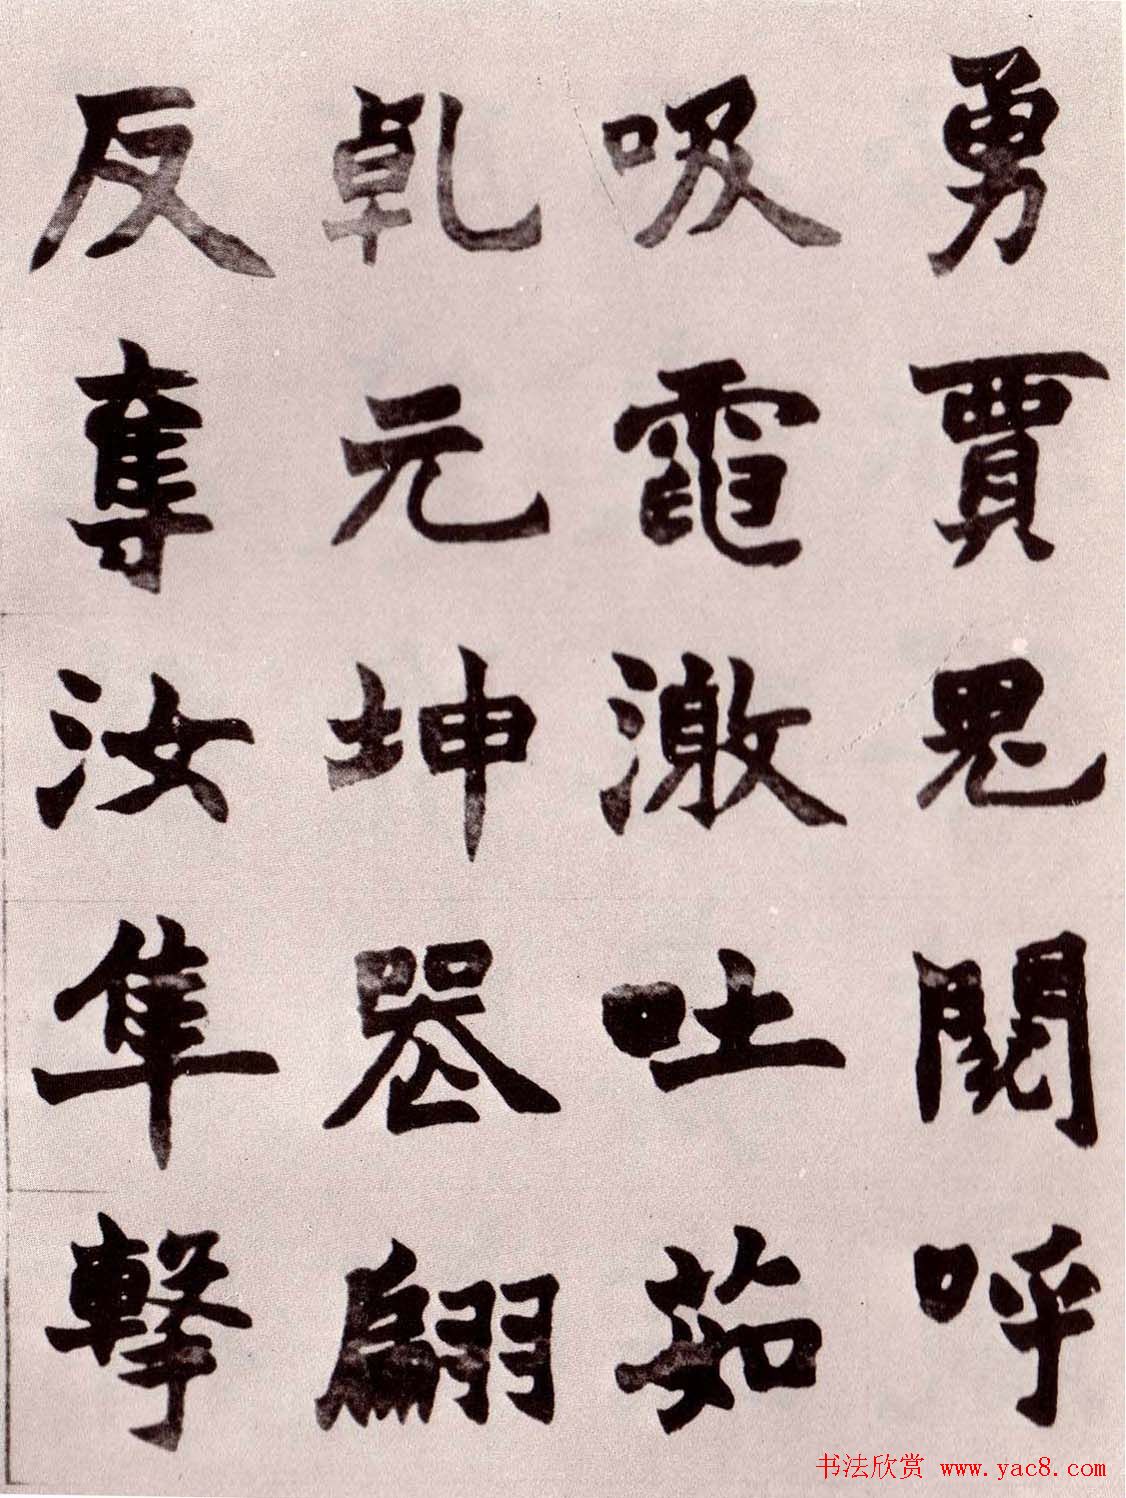 勇賈鬼鬩呼
吸電激吐茹
乾元坤翩
反奪汝隼擊
书法欣赏 www.yac8.com